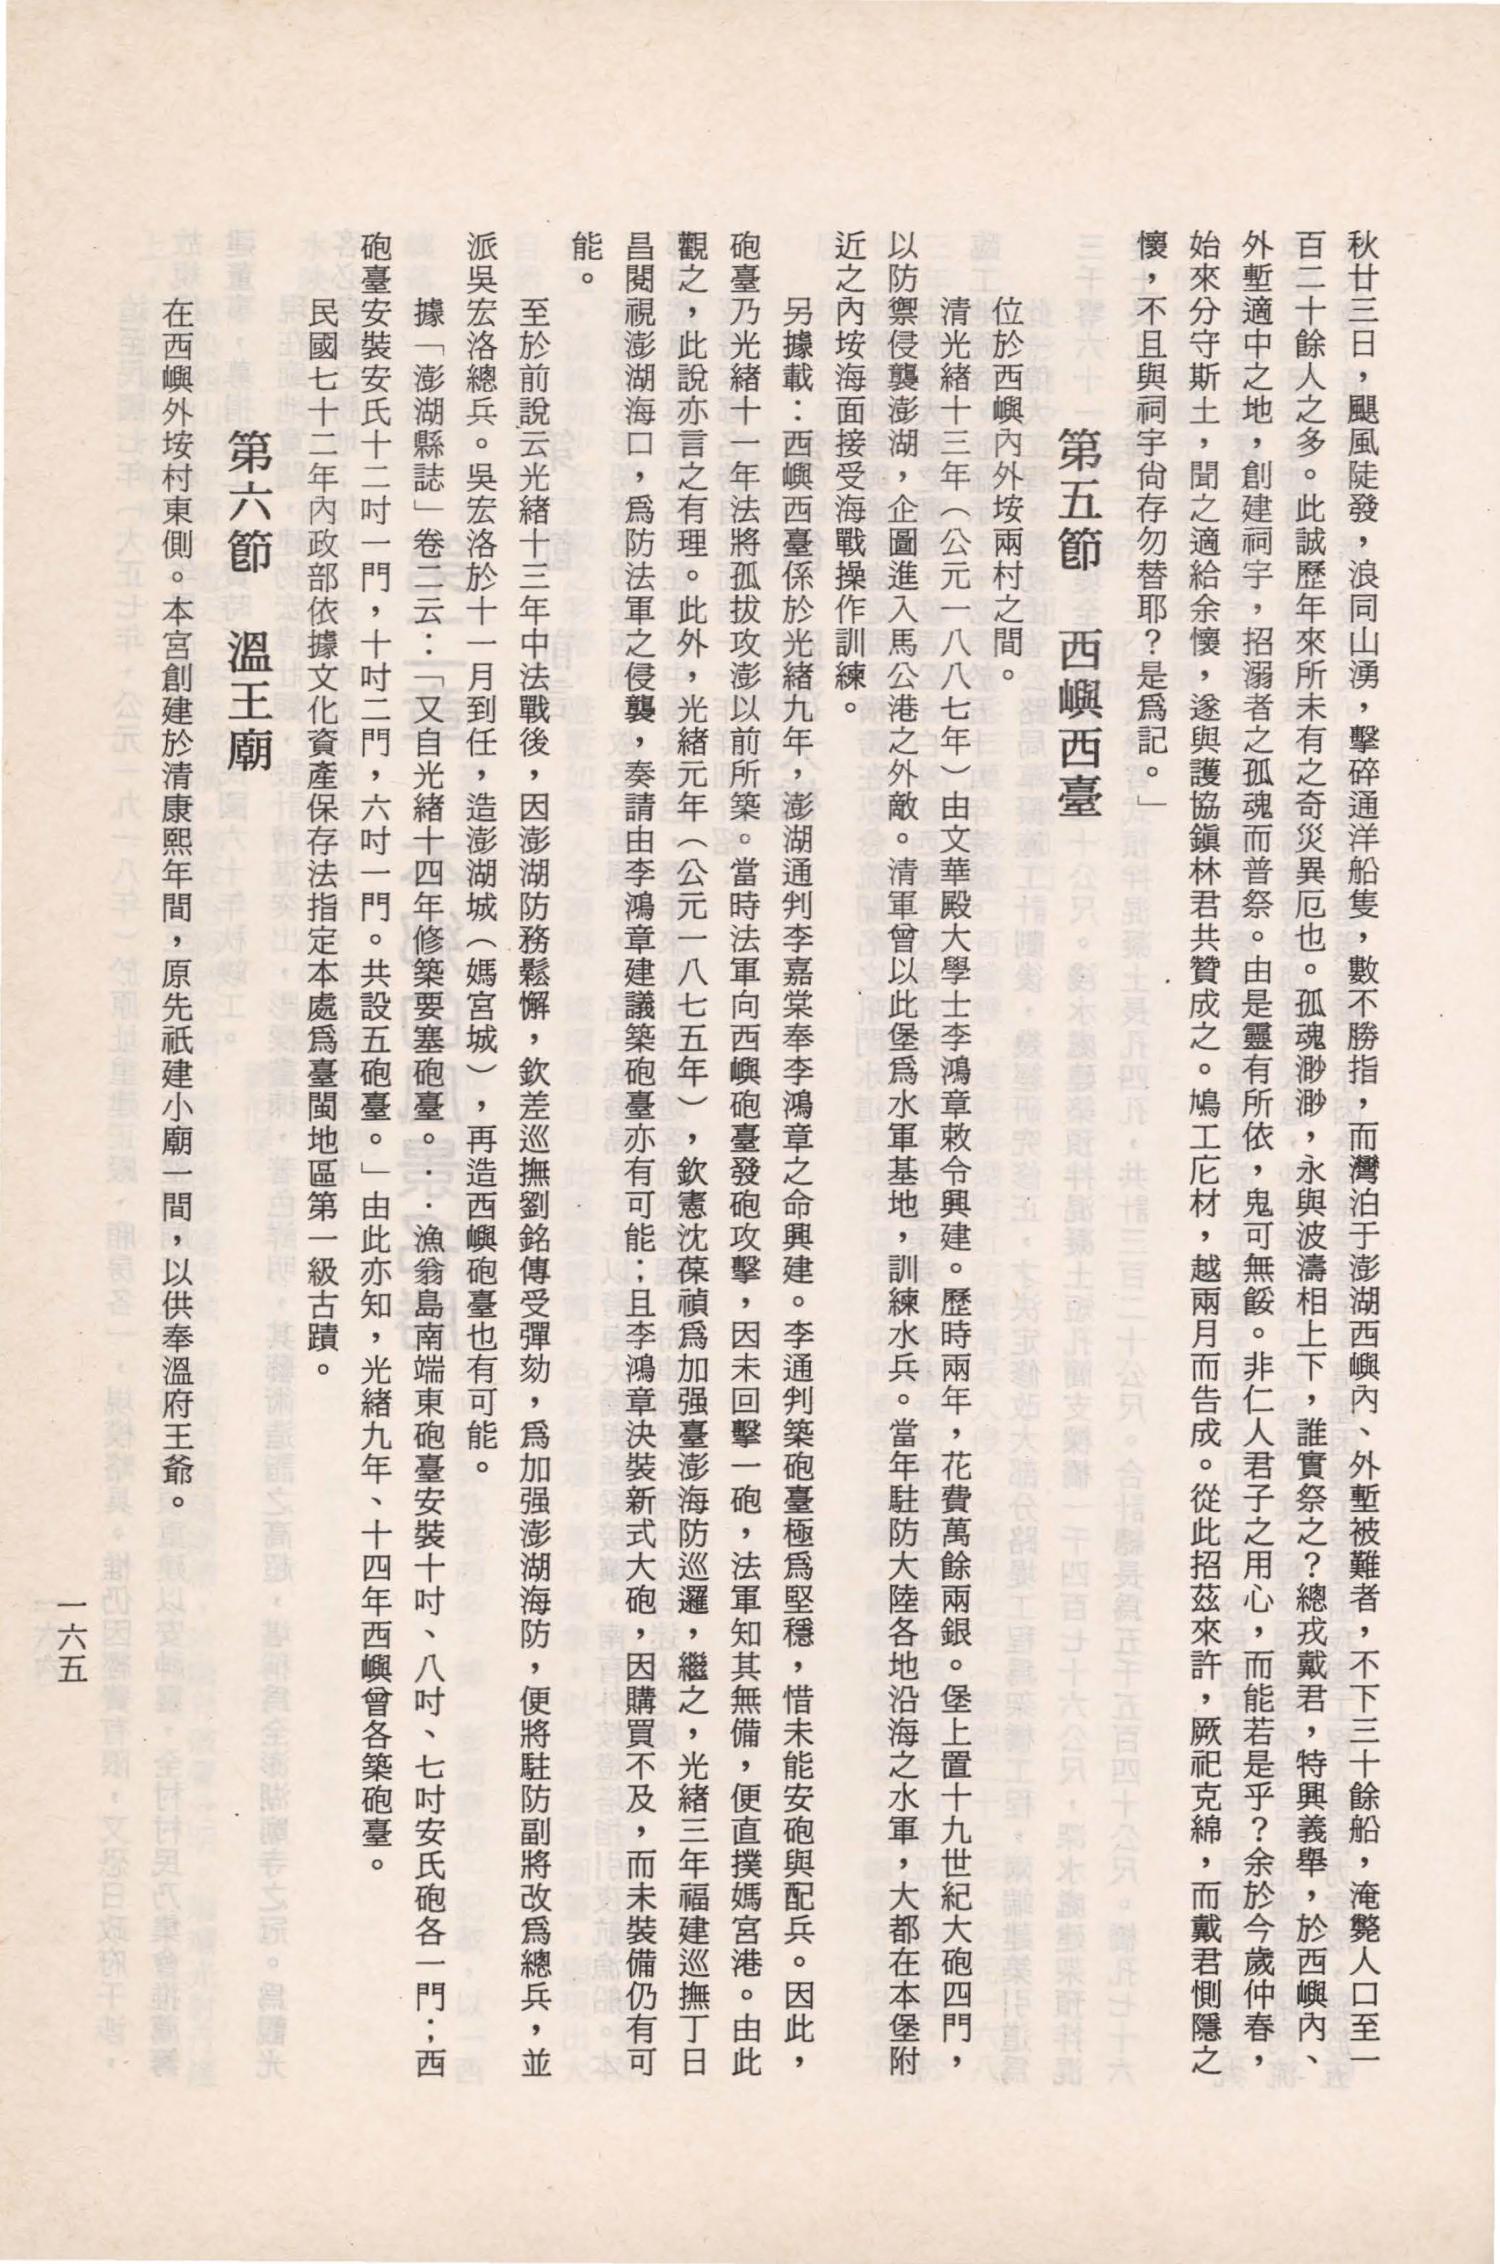 秋廿三日，颶風陡發，浪同山湧，擊碎通洋船隻，數不勝指，而灣泊于澎湖西嶼內、外塹被難者，不下三十餘船，淹斃人口至一
百二十餘人之多。此誠歷年來所未有之奇災異厄也。孤魂渺渺，永與波濤相上下，誰實祭之？總戎戴君，特興義舉，於西嶼內、
外塹適中之地，創建祠宇，招溺者之孤魂而普祭。由是靈有所依，鬼可無餒。非仁人君子之用心，而能若是乎？余於今歲仲春，
始來分守斯土，聞之適給余懷，遂與護協鎮林君共贊成之。鳩工庀材，越兩月而告成。從此招茲來許，厥祀克綿，而戴君惻隱之
懷，不且與祠宇尙存勿替耶？是爲記。」
第五節　西嶼西臺
位於西嶼內外垵兩村之間。
清光緒十三年（公元一八八七年）由文華殿大學士李鴻章敕令興建。歷時兩年，花費萬餘兩銀。堡上置十九世紀大砲四門，
以防禦侵襲澎湖，企圖進入馬公港之外敵。清軍曾以此堡爲水軍基地，訓練水兵。當年駐防大陸各地沿海之水軍，大都在本堡附
近之內垵海面接受海戰操作訓練。
另據載：西嶼西臺係於光緒九年，澎湖通判李嘉棠奉李鴻章之命興建。李通判築砲臺極爲堅穩，惜未能安砲與配兵。因此，
砲臺乃光緒十一年法將孤拔攻澎以前所築。當時法軍向西嶼砲臺發砲攻擊，因未回擊一砲，法軍知其無備，便直撲媽宮港。由此
觀之，此說亦言之有理。此外，光緒元年（公元一八七五年），欽憲沈葆禎爲加强臺澎海防巡邏，繼之，光緒三年福建巡撫丁日
昌閱視澎湖海口，爲防法軍之侵襲，奏請由李鴻章建議築砲臺亦有可能；且李鴻章決裝新式大砲，因購買不及，而未裝備仍有可
能。
至於前說云光緒十三年中法戰後，因澎湖防務鬆懈，欽差巡撫劉銘傳受彈劾，爲加强澎湖海防，便將駐防副將改爲總兵，並
派吳宏洛總兵。吳宏洛於十一月到任，造澎湖城（媽宮城），再造西嶼砲臺也有可能。
據「澎湖縣誌」卷二云：「又自光緒十四年修築要塞砲臺。．．漁翁島南端東砲臺安裝十吋、八吋、七吋安氏砲各一門；西
砲臺安裝安氏十二吋一門，十吋二門，六吋一門。共設五砲臺。」由此亦知，光緒九年、十四年西嶼曾各築砲臺。
民國七十二年內政部依據文化資產保存法指定本處爲臺閩地區第一級古蹟。
第六節　溫王廟
在西嶼外垵村東側。本宮創建於清康熙年間，原先衹建小廟一間，以供奉溫府王爺。
一六五